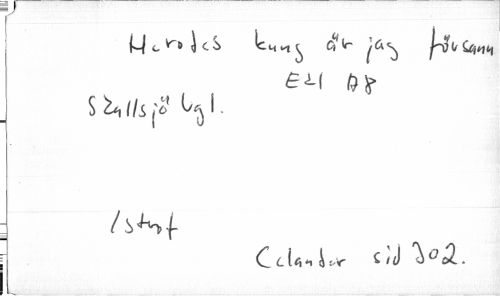 Herodes kung är jag försann
E21 A8
Skallsjö Vgl.
1 strof
Celander sid 302.